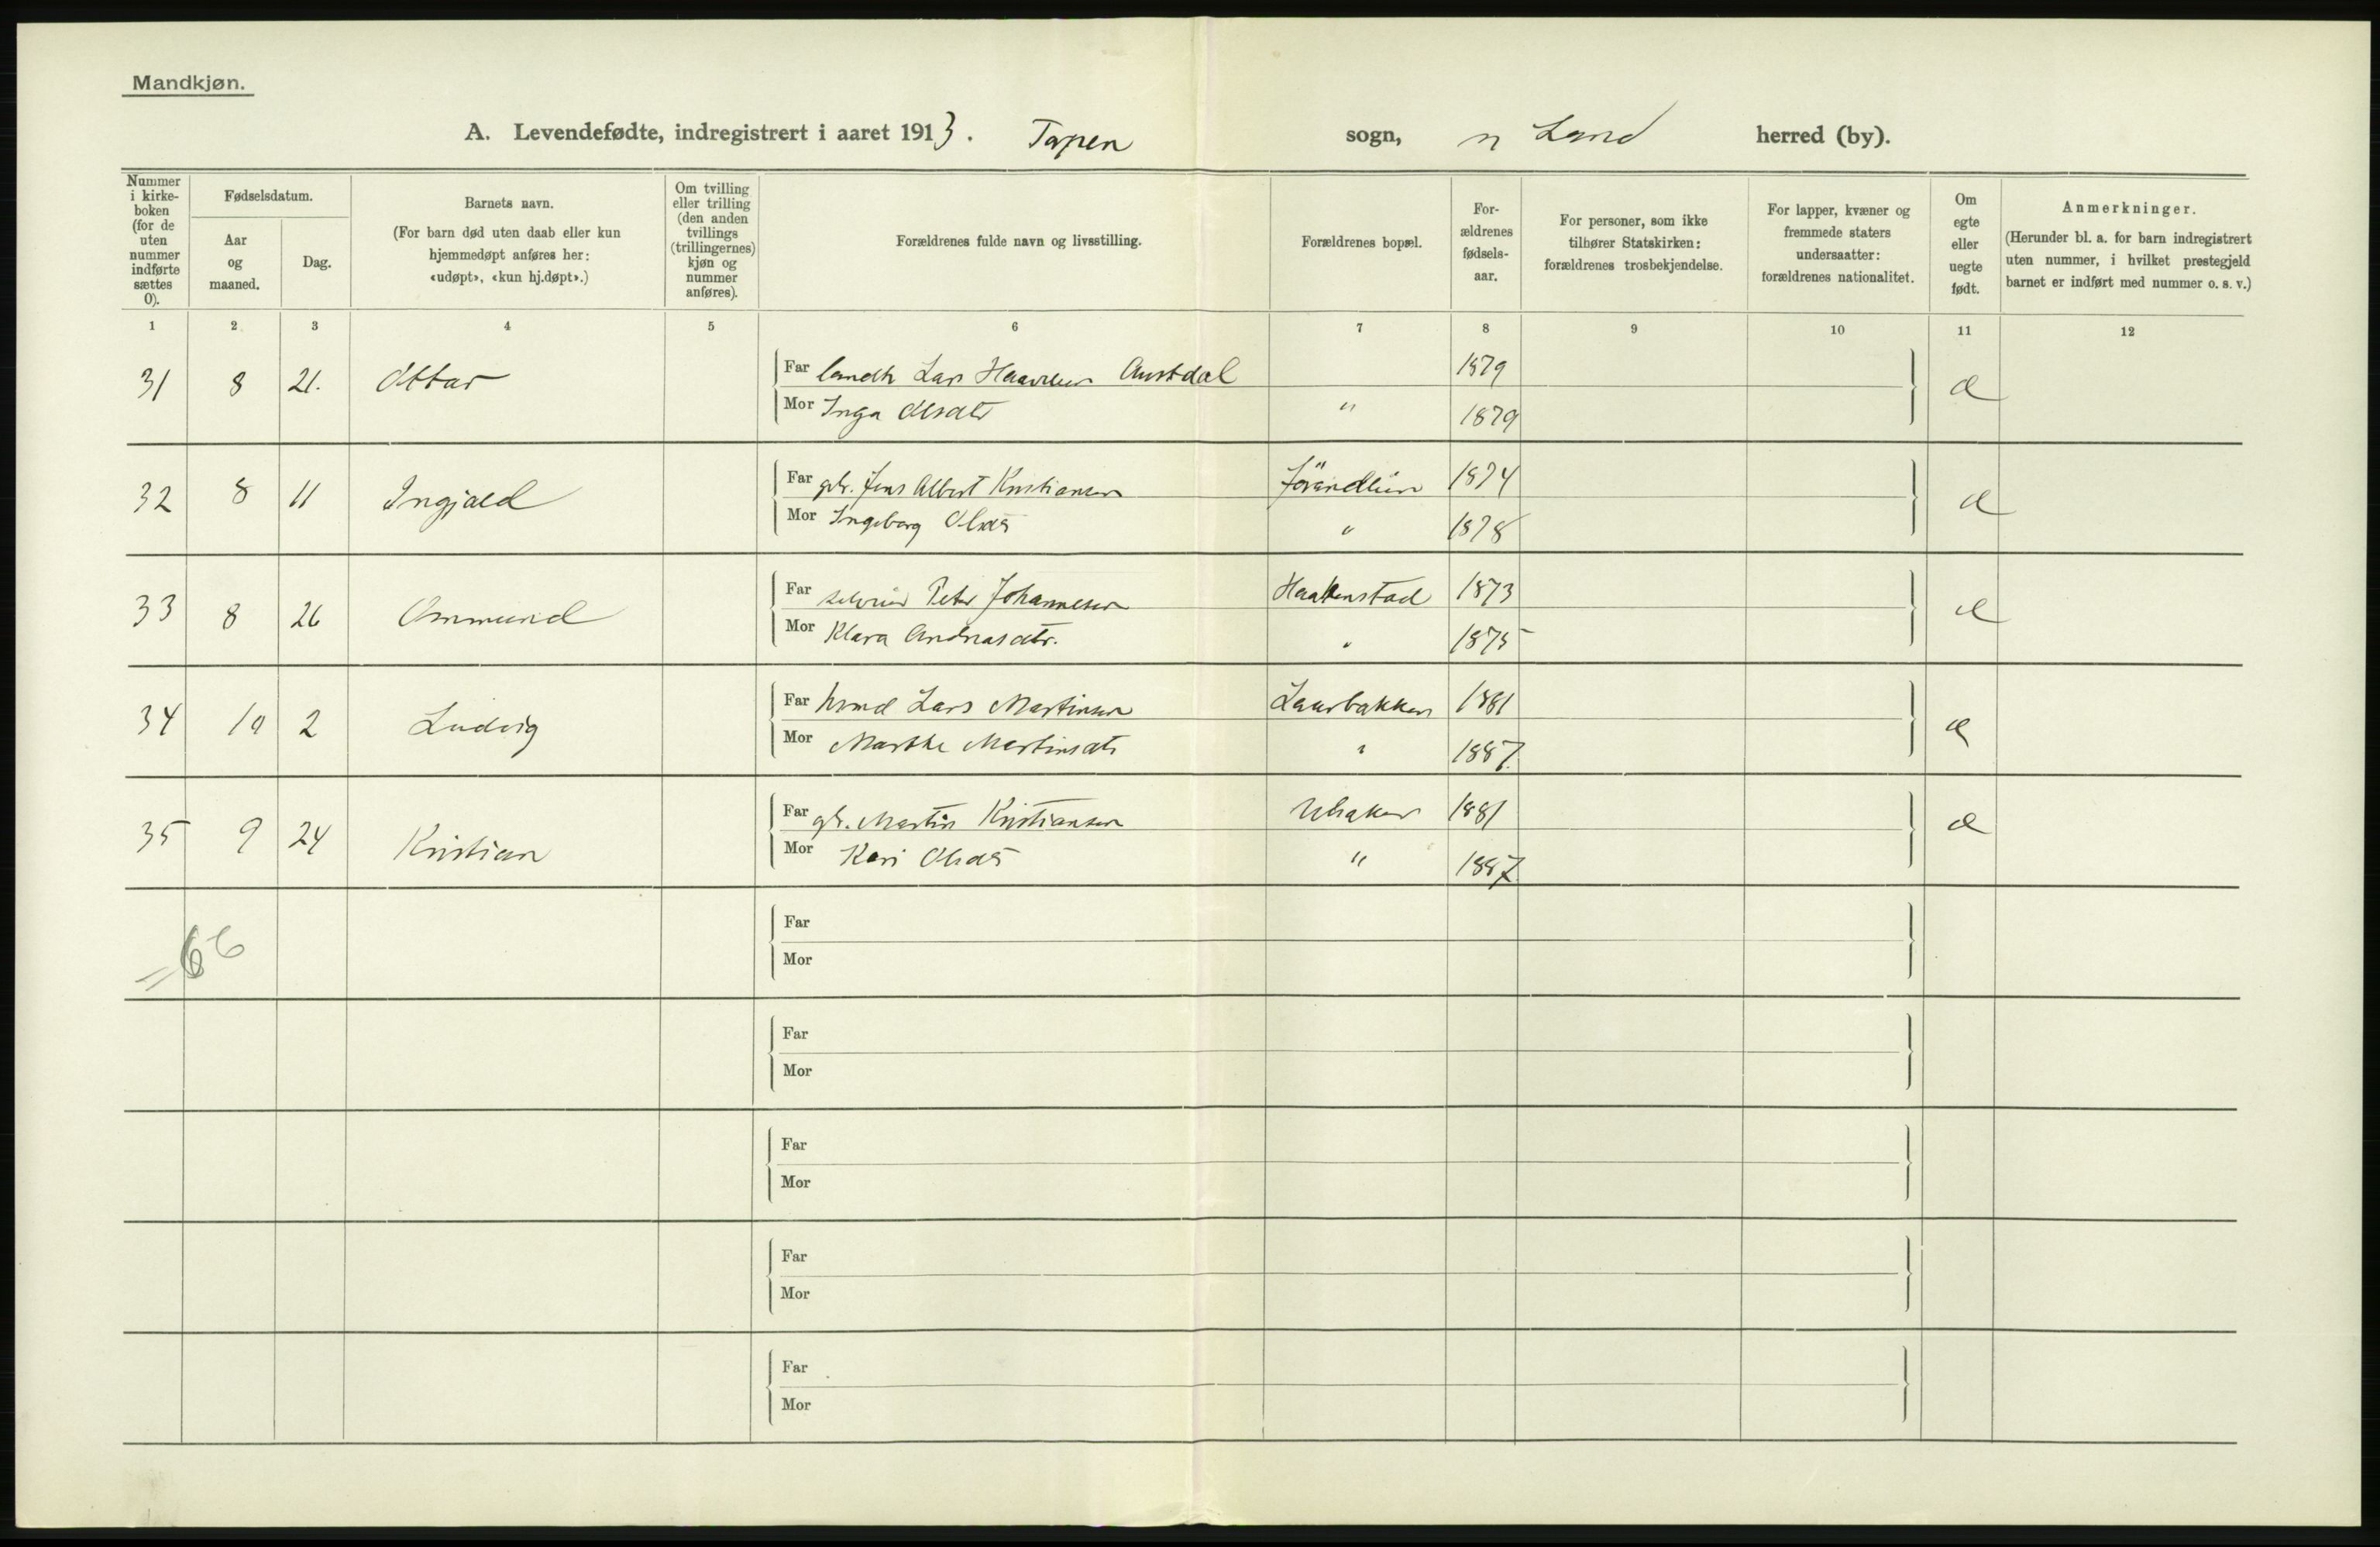 Mandkjøn.
A. Levendefødte, indregistrert i aaret 1913. Torpen sogn, n Land herred (by).
Nummer i kirkeboken (for de uten nummer indførte sættes 0).
Fødselsdatum.
Aar og maaned.
Dag.
Barnets navn.
(For barn død uten daab eller kun hjemmedøpt anføres her: «udøpt», «kun hj.døpt».)
Om tvilling eller trilling (den anden tvillings (trillingernes) kjøn og nummer anføres).
Forældrenes fulde navn og livsstilling.
Forældrenes bopæl.
Forældrenes fødselsaar.
For personer, som ikke tilhører Statskirken: forældrenes trosbekjendelse.
For lapper, kvæner og fremmede staters undersaatter: forældrenes nationalitet.
Om egte eller uegte født.
Anmerkninger.
(Herunder bl. a. for barn indregistrert uten nummer, i hvilket prestegjeld barnet er indført med nummer o. s. v.)
1 2 3 4 5 6 7 8 9 10 11 12
31 8 21. Ottar Far landh Lars Austdal 1879 æ
Mor Inga Olsdtr " 1879
32 8 11 Ingjald Far gbr. Jens Albert Kristiansen 1874 æ
Mor Ingeborg Olsdtr " 1878
33 8 26 Ommund Far Peter Johannesen Haakenstad 1873 æ
Mor Klara Andreasdtr. " 1875
34 10 2 Ludvig Far Lars Martinsen 1881 æ
Mor Marthe Martinsdtr " 1887.
35 9 24 Kristian Far gbr. Martin Kristiansen Ulsaker 1881 æ
Mor Kari Olsdtr " 1887.
=66 Far
Mor
Far
Mor
Far
Mor
Far
Mor
Far
Mor